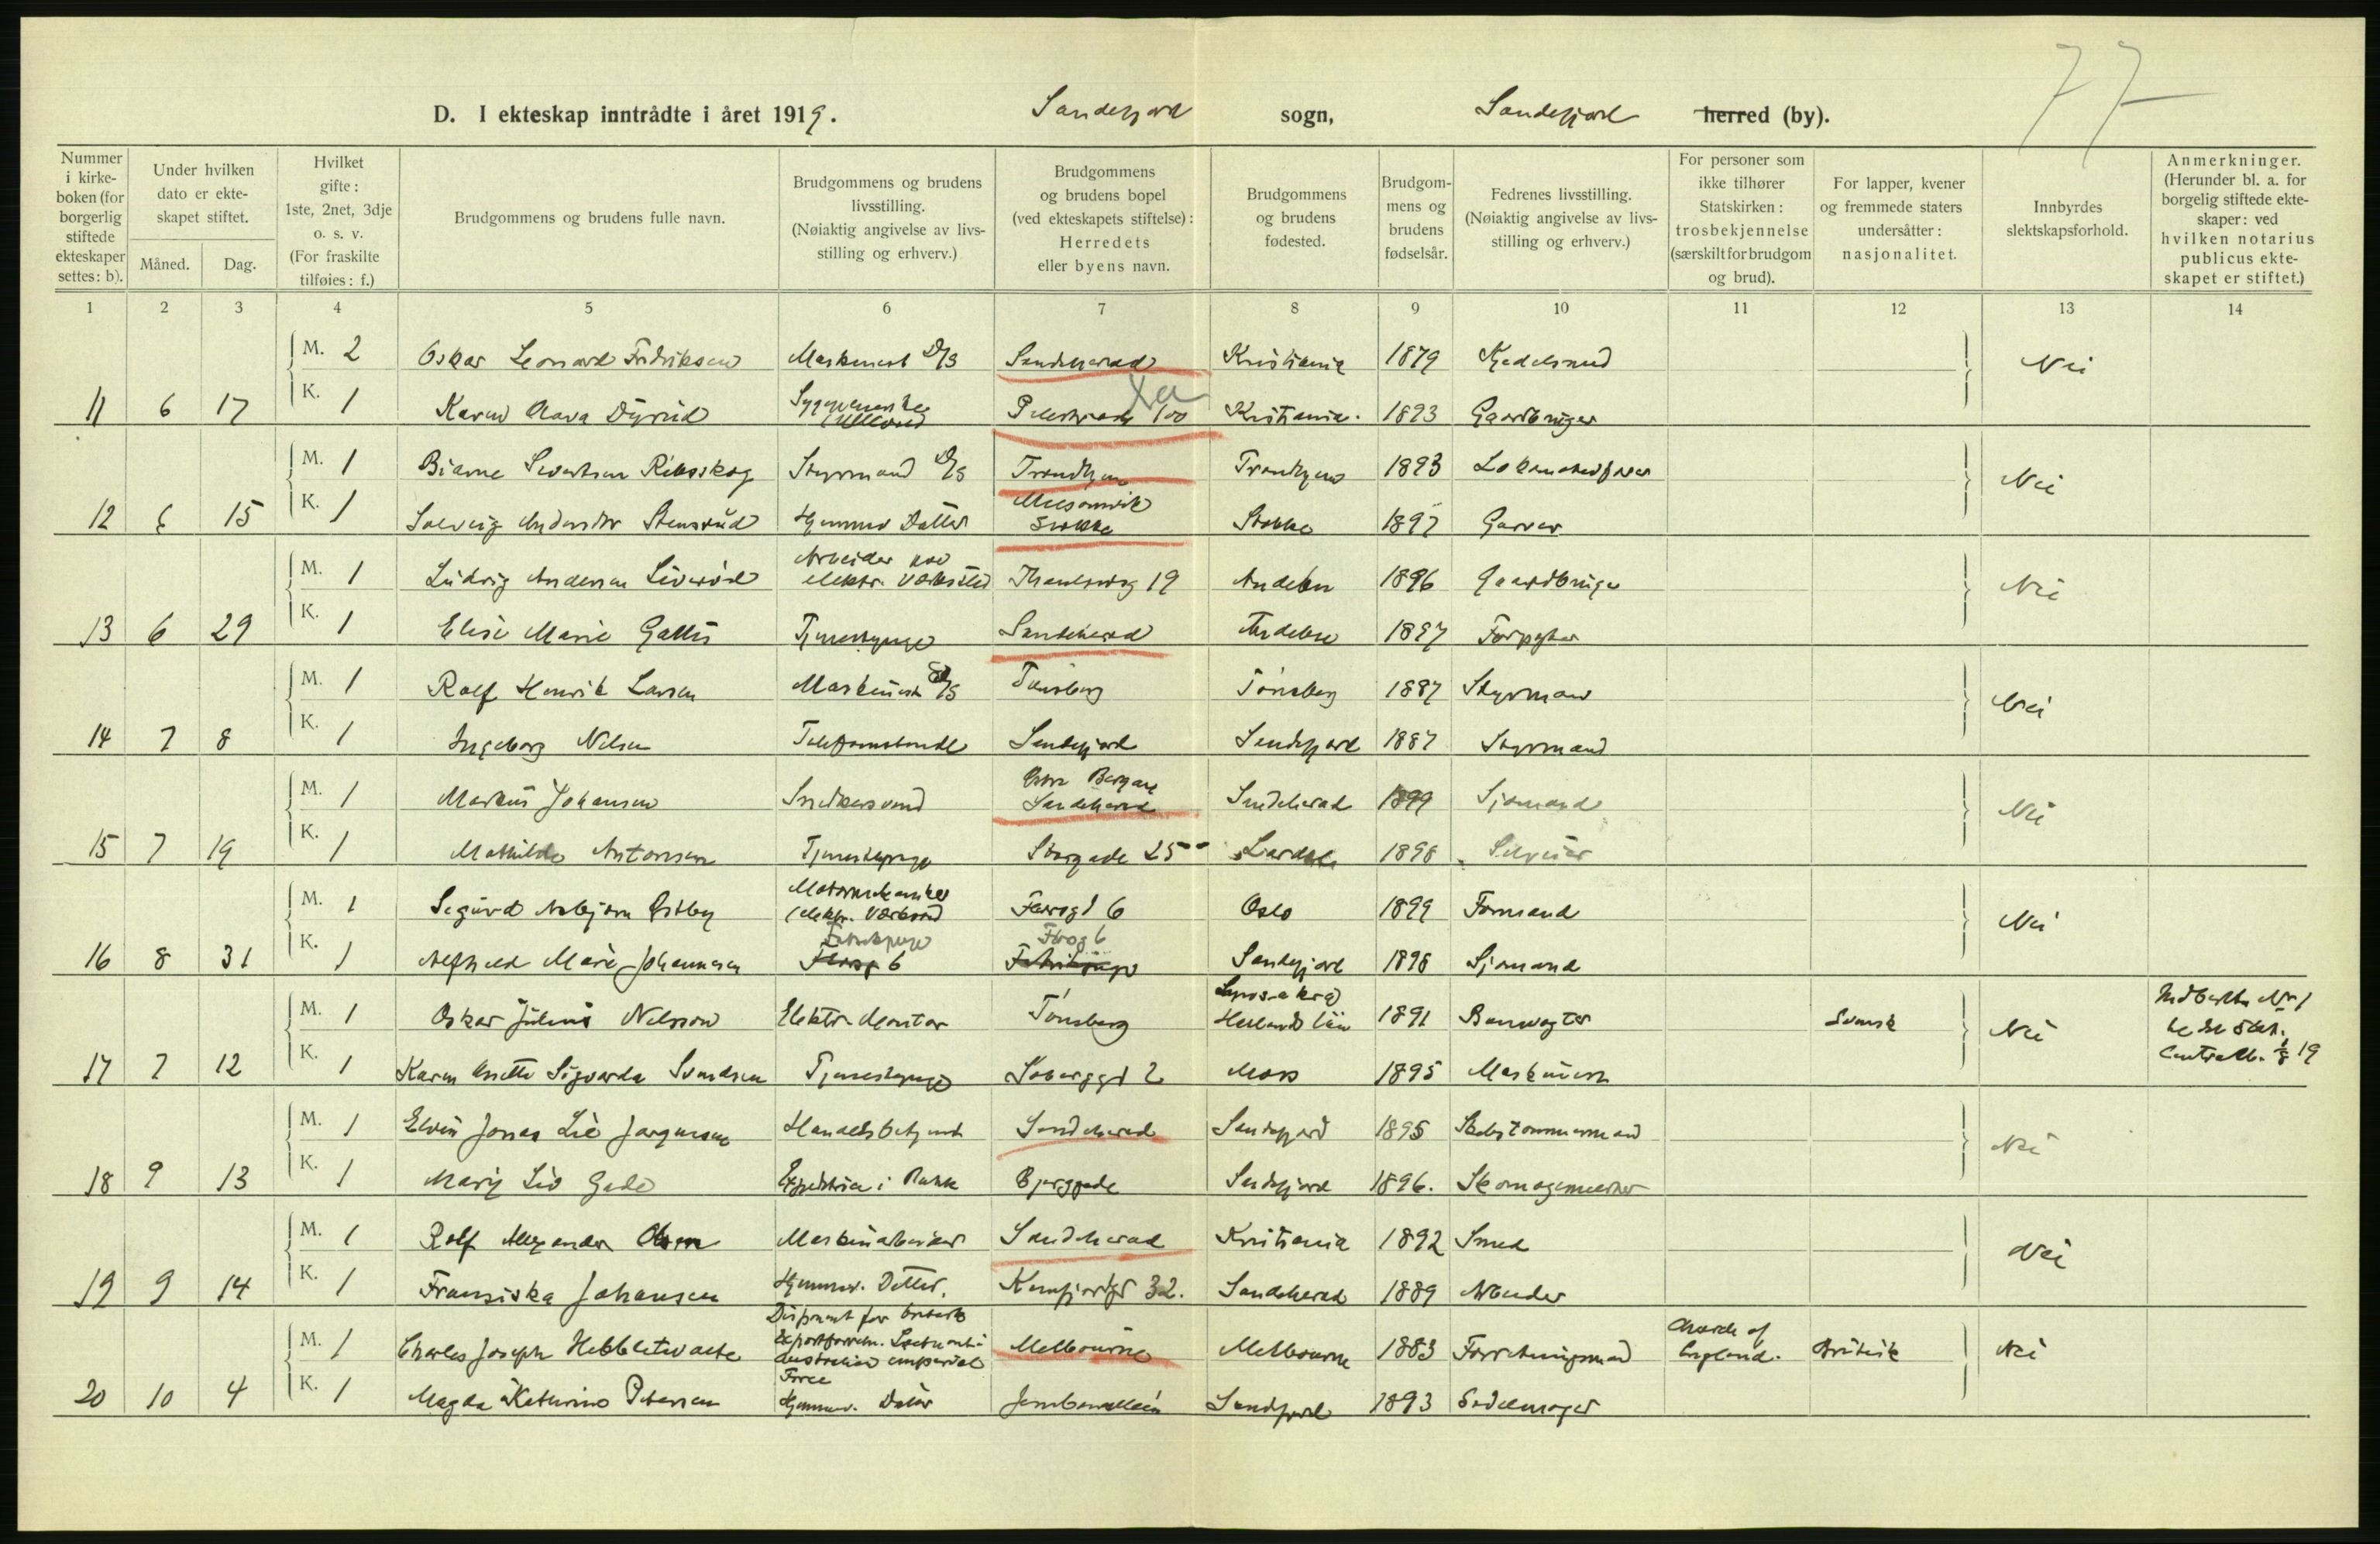 77
D. I ekteskap inntrådte i året 1919. Sandefjord sogn, Sandefjord herred (by).
Nummer i kirke-boken (for borgerlig stiftede ekteskaper settes: b).
Under hvilken dato er ekte-skapet stiftet.
Måned. Dag.
Hvilket gifte: 1ste, 2net, 3dje o. s. v. (For fraskilte tilføies: f.)
Brudgommens og brudens fulle navn.
Brudgommens og brudens livsstilling. (Nøiaktig angivelse av livs-stilling og erhverv.)
Brudgommens og brudens bopel (ved ekteskapets stiftelse): Herredets eller byens navn.
Brudgommens og brudens fødested.
Brudgom-mens og brudens fødselsår.
Fedrenes livsstilling. (Nøiaktig angivelse av livs-stilling og erhverv.)
For personer som ikke tilhører Statskirken: trosbekjennelse (særskilt for brudgom og brud).
For lapper, kvener og fremmede staters undersåtter: nasjonalitet.
Innbyrdes slektskapsforhold.
Anmerkninger. (Herunder bl. a. for borgelig stiftede ekte-skaper: ved hvilken notarius publicus ekte-skapet er stiftet.)
1 2 3 4 5 6 7 8 9 10 11 12 13 14
M. 2 Oskar Leonard Fridriksen Maskinist D/S Sandeherad Kristiania 1879 Kjedelsmed Nei
11 6 17 K. 1 Karen Olava Dyrud Sygepleierske Ullevaal 100 Kristiania. 1893 Gaardbruger
M. 1 Bjarne Sivertsen Styrmand D/S Trondhjem Trondhjem 1893 Nei
12 6 15 K. 1 Solveig Stensrud Hjemmev Datter Melsomvik Stokke Stokke 1897 Garver
M. 1 Ludvig Andersen Liverød Arbeider ved elektr. Værksted Thaulowsg 19 Andebu 1896 Gaardbruger Nei
13 6 29 K. 1 Elise Marie Tjenestepige Sandeherad Andebu 1897 Forpagter
M. 1 Rolf Henrik Larsen Maskinist D/S Tønsberg Tønsberg 1887 Styrmand Nei
14 7 8 K. 1 Ingeborg Nilsen Sandefjord Sandefjord 1887 Styrmand
M. 1 Markus Johansen Snedkersvend Sandeherad Sandeherad 1899 Sjømand Nei
15 7 19 K. 1 Mathilde Antonsen Tjenestepige Storgade 25 Lardal 1898
M. 1 Sigurd Asbjørn Østby elektr. Værksted 6 Oslo 1899 Formand Nei
16 8 31 K. 1 Alfhild Marie Johannesen Fabrikpige 6 Sandefjord 1898 Sjømand
M. 1 Oskar Julius Nilsson Elektr. Montør Tønsberg Hallands län 1891 Banvogter Svensk Nei
17 7 12 K. 1 Karen Anette Sigvarda Svendsen Tjenestepige 2 Moss 1895 Maskinist 19
M. 1 Elvin Jonas Lie Jørgensen Handelsbetjent Sandeherad Sandefjord 1895 Skibstømmermand Nei
18 9 13 K. 1 Mary Liv Gade i Bjerggade Sandefjord 1896. Skomagermester
M. 1 Rolf Alexander Olsen Maskinarbeider Sandeherad Kristiania 1892 Smed Nei
19 9 14 K. 1 Fransiska Johansen Hjemmev. Datter. 32. Sandeherad 1889 Arbeider
M. 1 Charles Joseph Hebbletwaite Disponent for Australian imperial Force Melbourne Melbourne 1883 Forretningsmand Church of England. Britisk Nei
20 10 4 K. 1 Magda Katurine Petersen Hjemmev. Datter Jernbanealleen Sandefjord 1893 Sadelmager